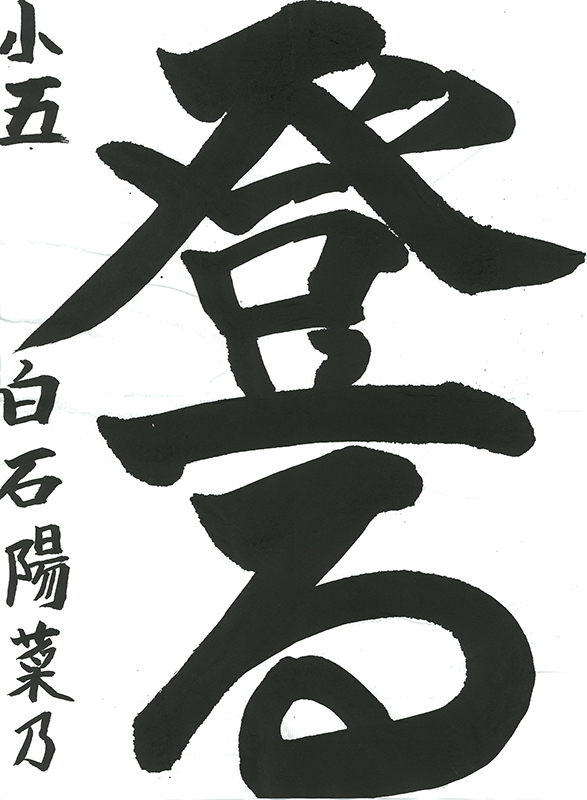 登る
小五 白石陽菜乃